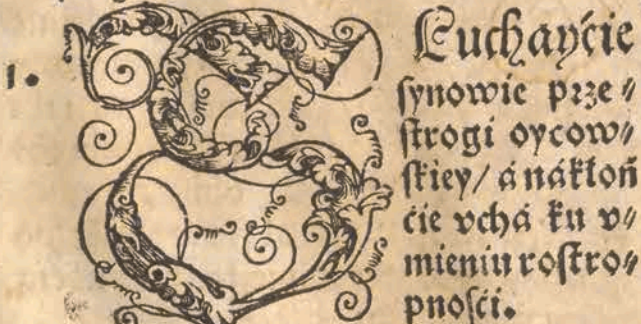 1. SLuchayćie
synowie prze⸗
strogi oycow⸗
skiey/ á nákłoń
ćie vchá ku v⸗
mieniu rostro⸗
pnośći.